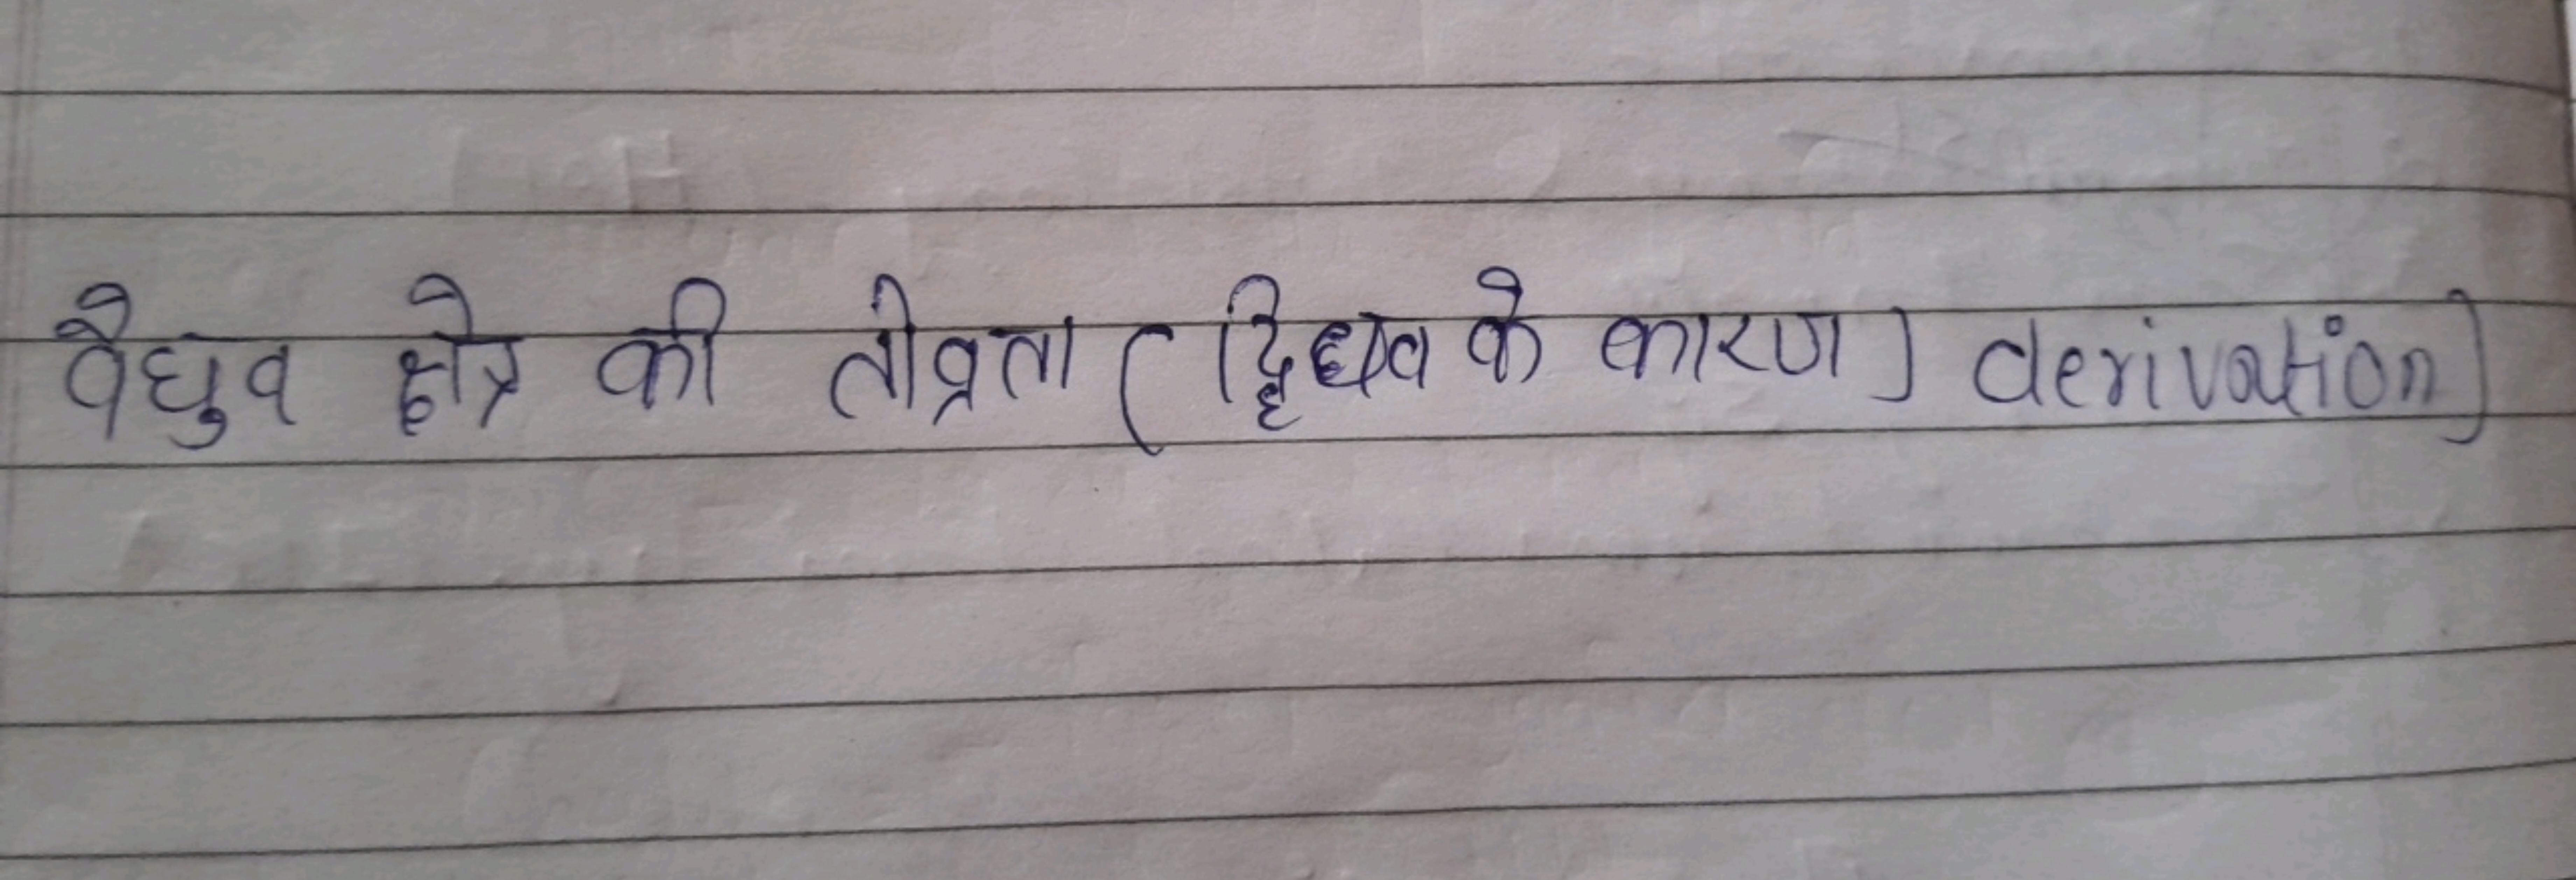 वैधुव क्षेत्र की तीव्रता ( द्विध्रुव के कारण ) derivation)